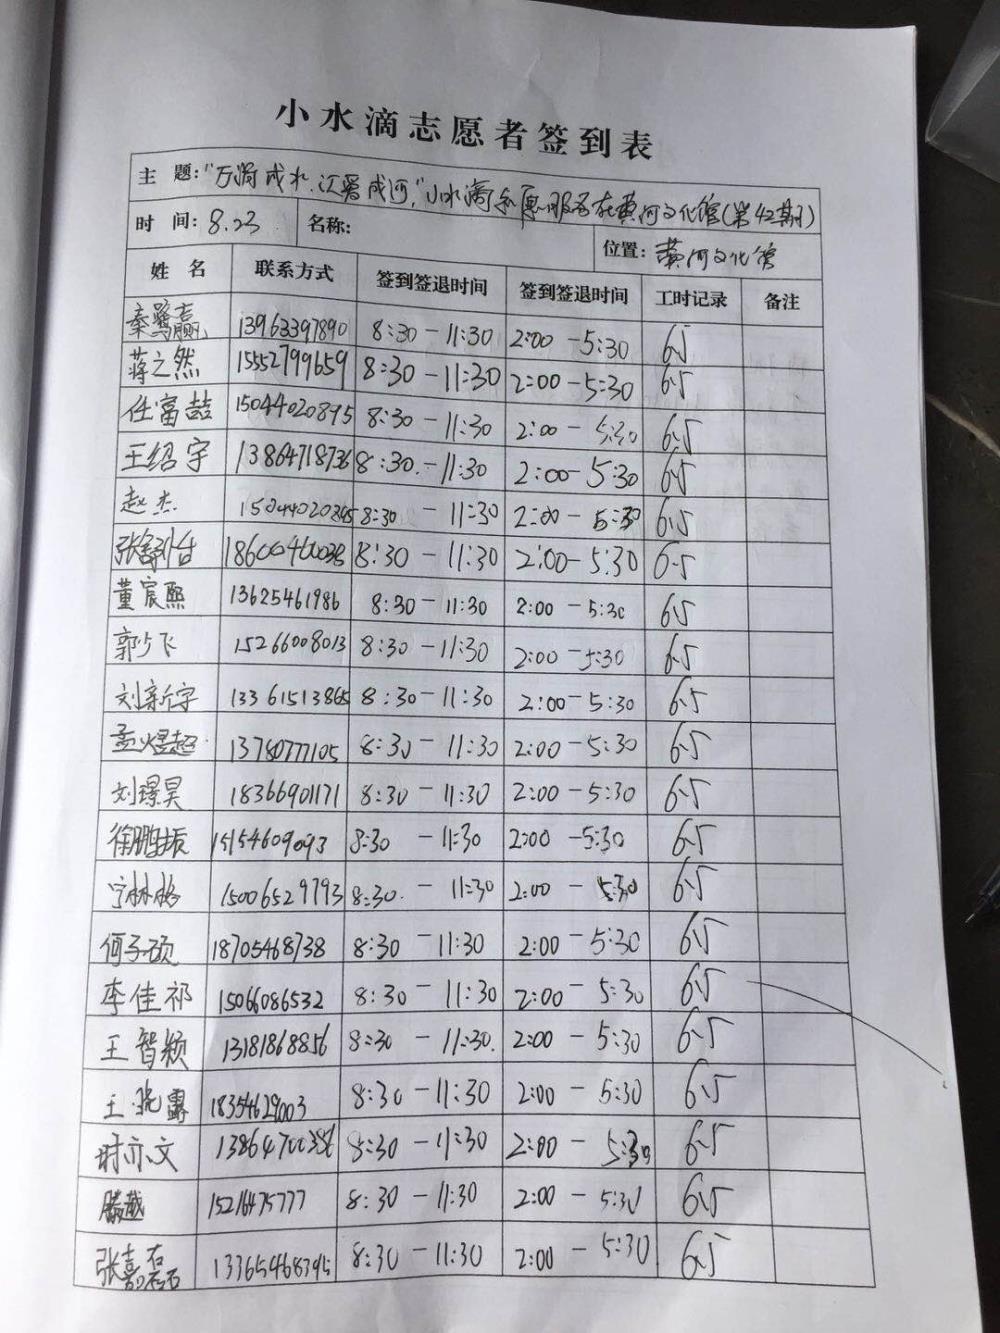 小水滴志愿者签到表
主 题: "万滴成水,汇署成河,"小水滴志愿服务在黄河文化馆(第42期)
时 间: 8.23 名称: 位置: 黄河文化馆
姓 名 联系方式 签到签退时间 签到签退时间 工时记录 备注
秦鹭赢 13963397890 8:30-11:30 2:00-5:30 6.5
蒋之然 15552799659 8:30-11:30 2:00-5:30 6.5
任富喆 15044020895 8:30-11:30 2:00-5:30 6.5
王绍宇 13864718736 8:30-11:30 2:00-5:30 6.5
赵杰 15044020895 8:30-11:30 2:00-5:30 6.5
18600460038 8:30-11:30 2:00-5:30 6.5
董宸熙 13625461986 8:30-11:30 2:00-5:30 6.5
郭少飞 15266008013 8:30-11:30 2:00-5:30 6.5
刘新宇 13361513865 8:30-11:30 2:00-5:30 6.5
孟煜超 13780777105 8:30-11:30 2:00-5:30 6.5
刘璟昊 18366901171 8:30-11:30 2:00-5:30 6.5
徐鹏振 15154609093 8:30-11:30 2:00-5:30 6.5
宁林格 15006529793 8:30-11:30 2:00-5:30 6.5
何子硕 18705468738 8:30-11:30 2:00-5:30 6.5
李佳祁 15066086532 8:30-11:30 2:00-5:30 6.5
王智颖 13181868856 8:30-11:30 2:00-5:30 6.5
王晓露 18354629003 8:30-11:30 2:00-5:30 6.5
时亦文 13864700386 8:30-11:30 2:00-5:30 6.5
滕越 15216475777 8:30-11:30 2:00-5:30 6.5
张嘉磊 13365468395 8:30-11:30 2:00-5:30 6.5